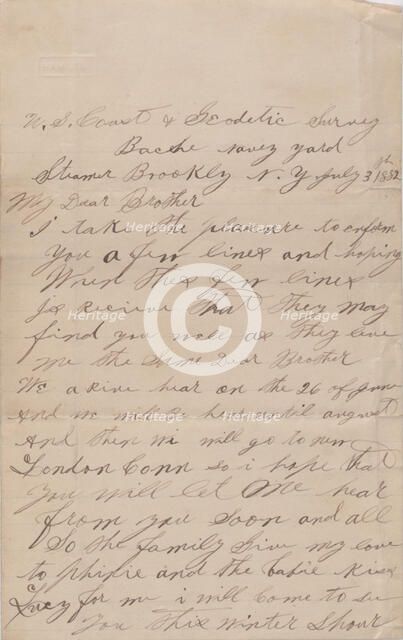 U. S. Coast & Geodetic Survey
Bache navey yard
Steamer Brookly N. Y July 3th 1882
My Dear Brother
I take the pleasure to enform
You a few lines and hoping
When thes few lines
Is recieve That They may
find you well as They leve
me the Same Dear Brother
We arive hear on the 26 of June
And we will be here until august
And then we will go to new
London Conn so i hope that
You will let Me hear
from you soon and all
So the family Give my love
to and the babie Kiss
Lucy for me i will come to see
You This Winter
Heritage
Heritage
Heritage
Heritage
Heritage
Heritage
Heritage